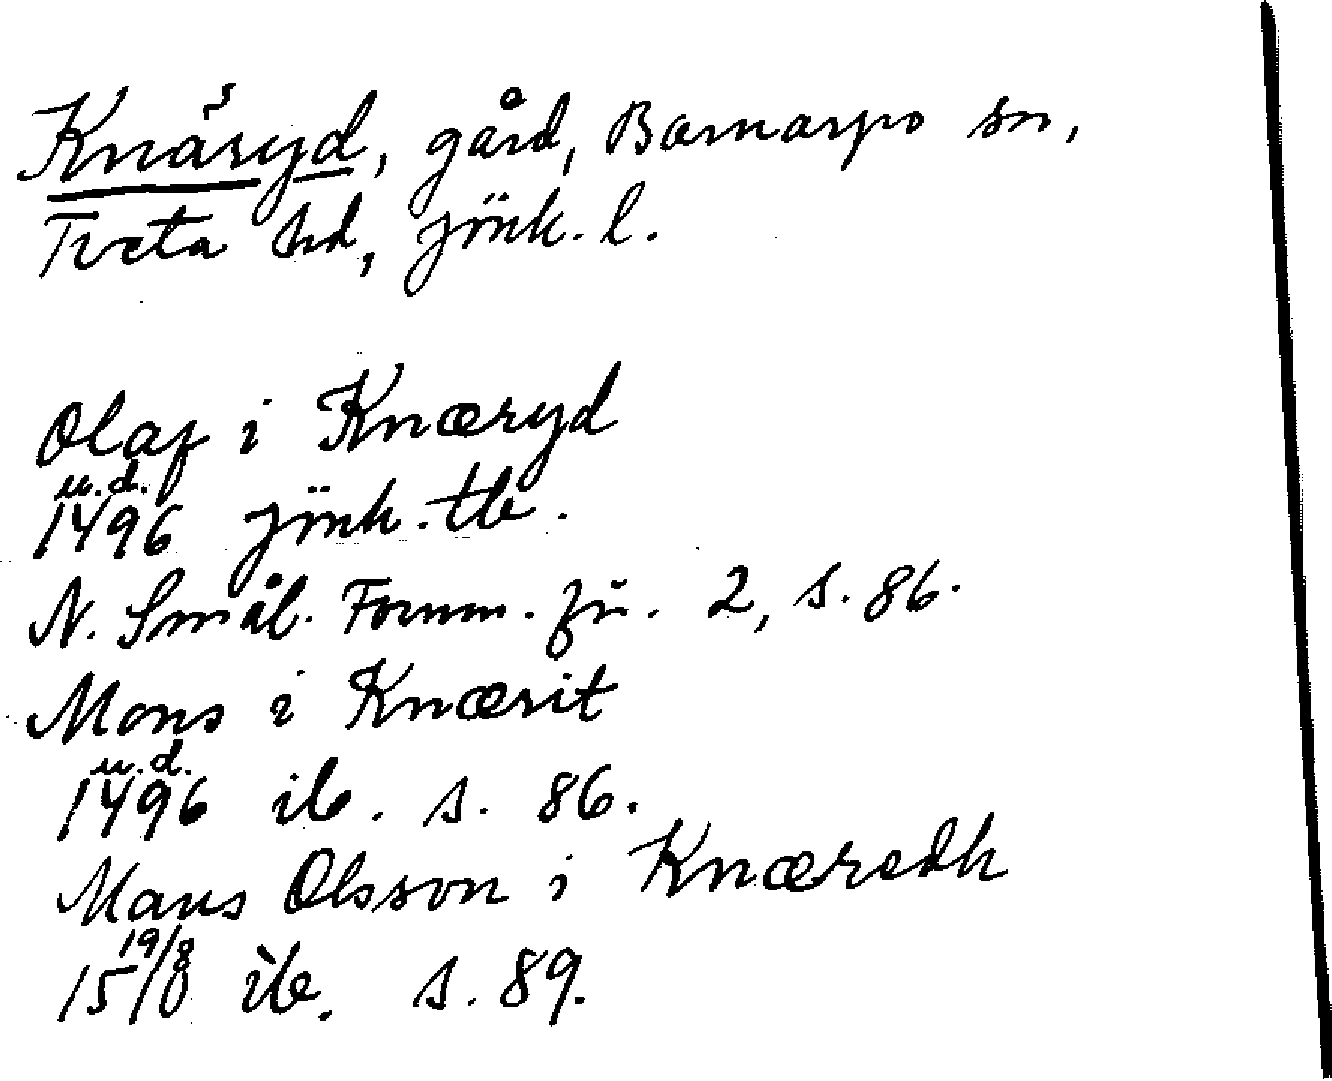 Knäryd, gård, Barnarps sn,
Tveta hd, Jönk. l.
Olaf i Knæryd
u.d.
1496 Jönk. tb.
N. Smål. Fornm. för. 2, s. 86.
Mons i Knærit
u.d.
1496 ib. s. 86.
Mans Olsson i Knæredh
19/8
1510 ib. s. 89.